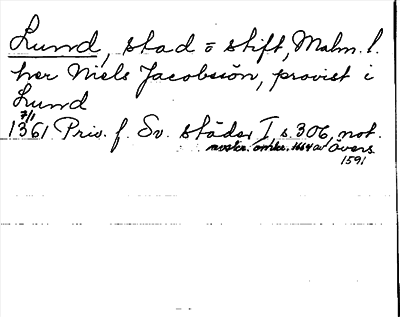 Lund, stad o stift, Malm. l.
her Niels Jacobsön, provist i
Lund
7/1
1361 Priv. f. Sv. städer I, s. 306, not.
avskr. omkr. 1664 av övers.
1591